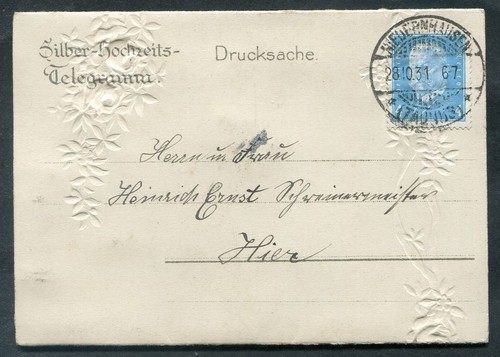 Silber-Hochzeits-
Telegramm.
Drucksache.
NIEDERNHAUSEN
28.10.31 6-7
* (TAUNUS) *
Herrn u Frau
Heinrich Ernst Schreinermeister
Hier